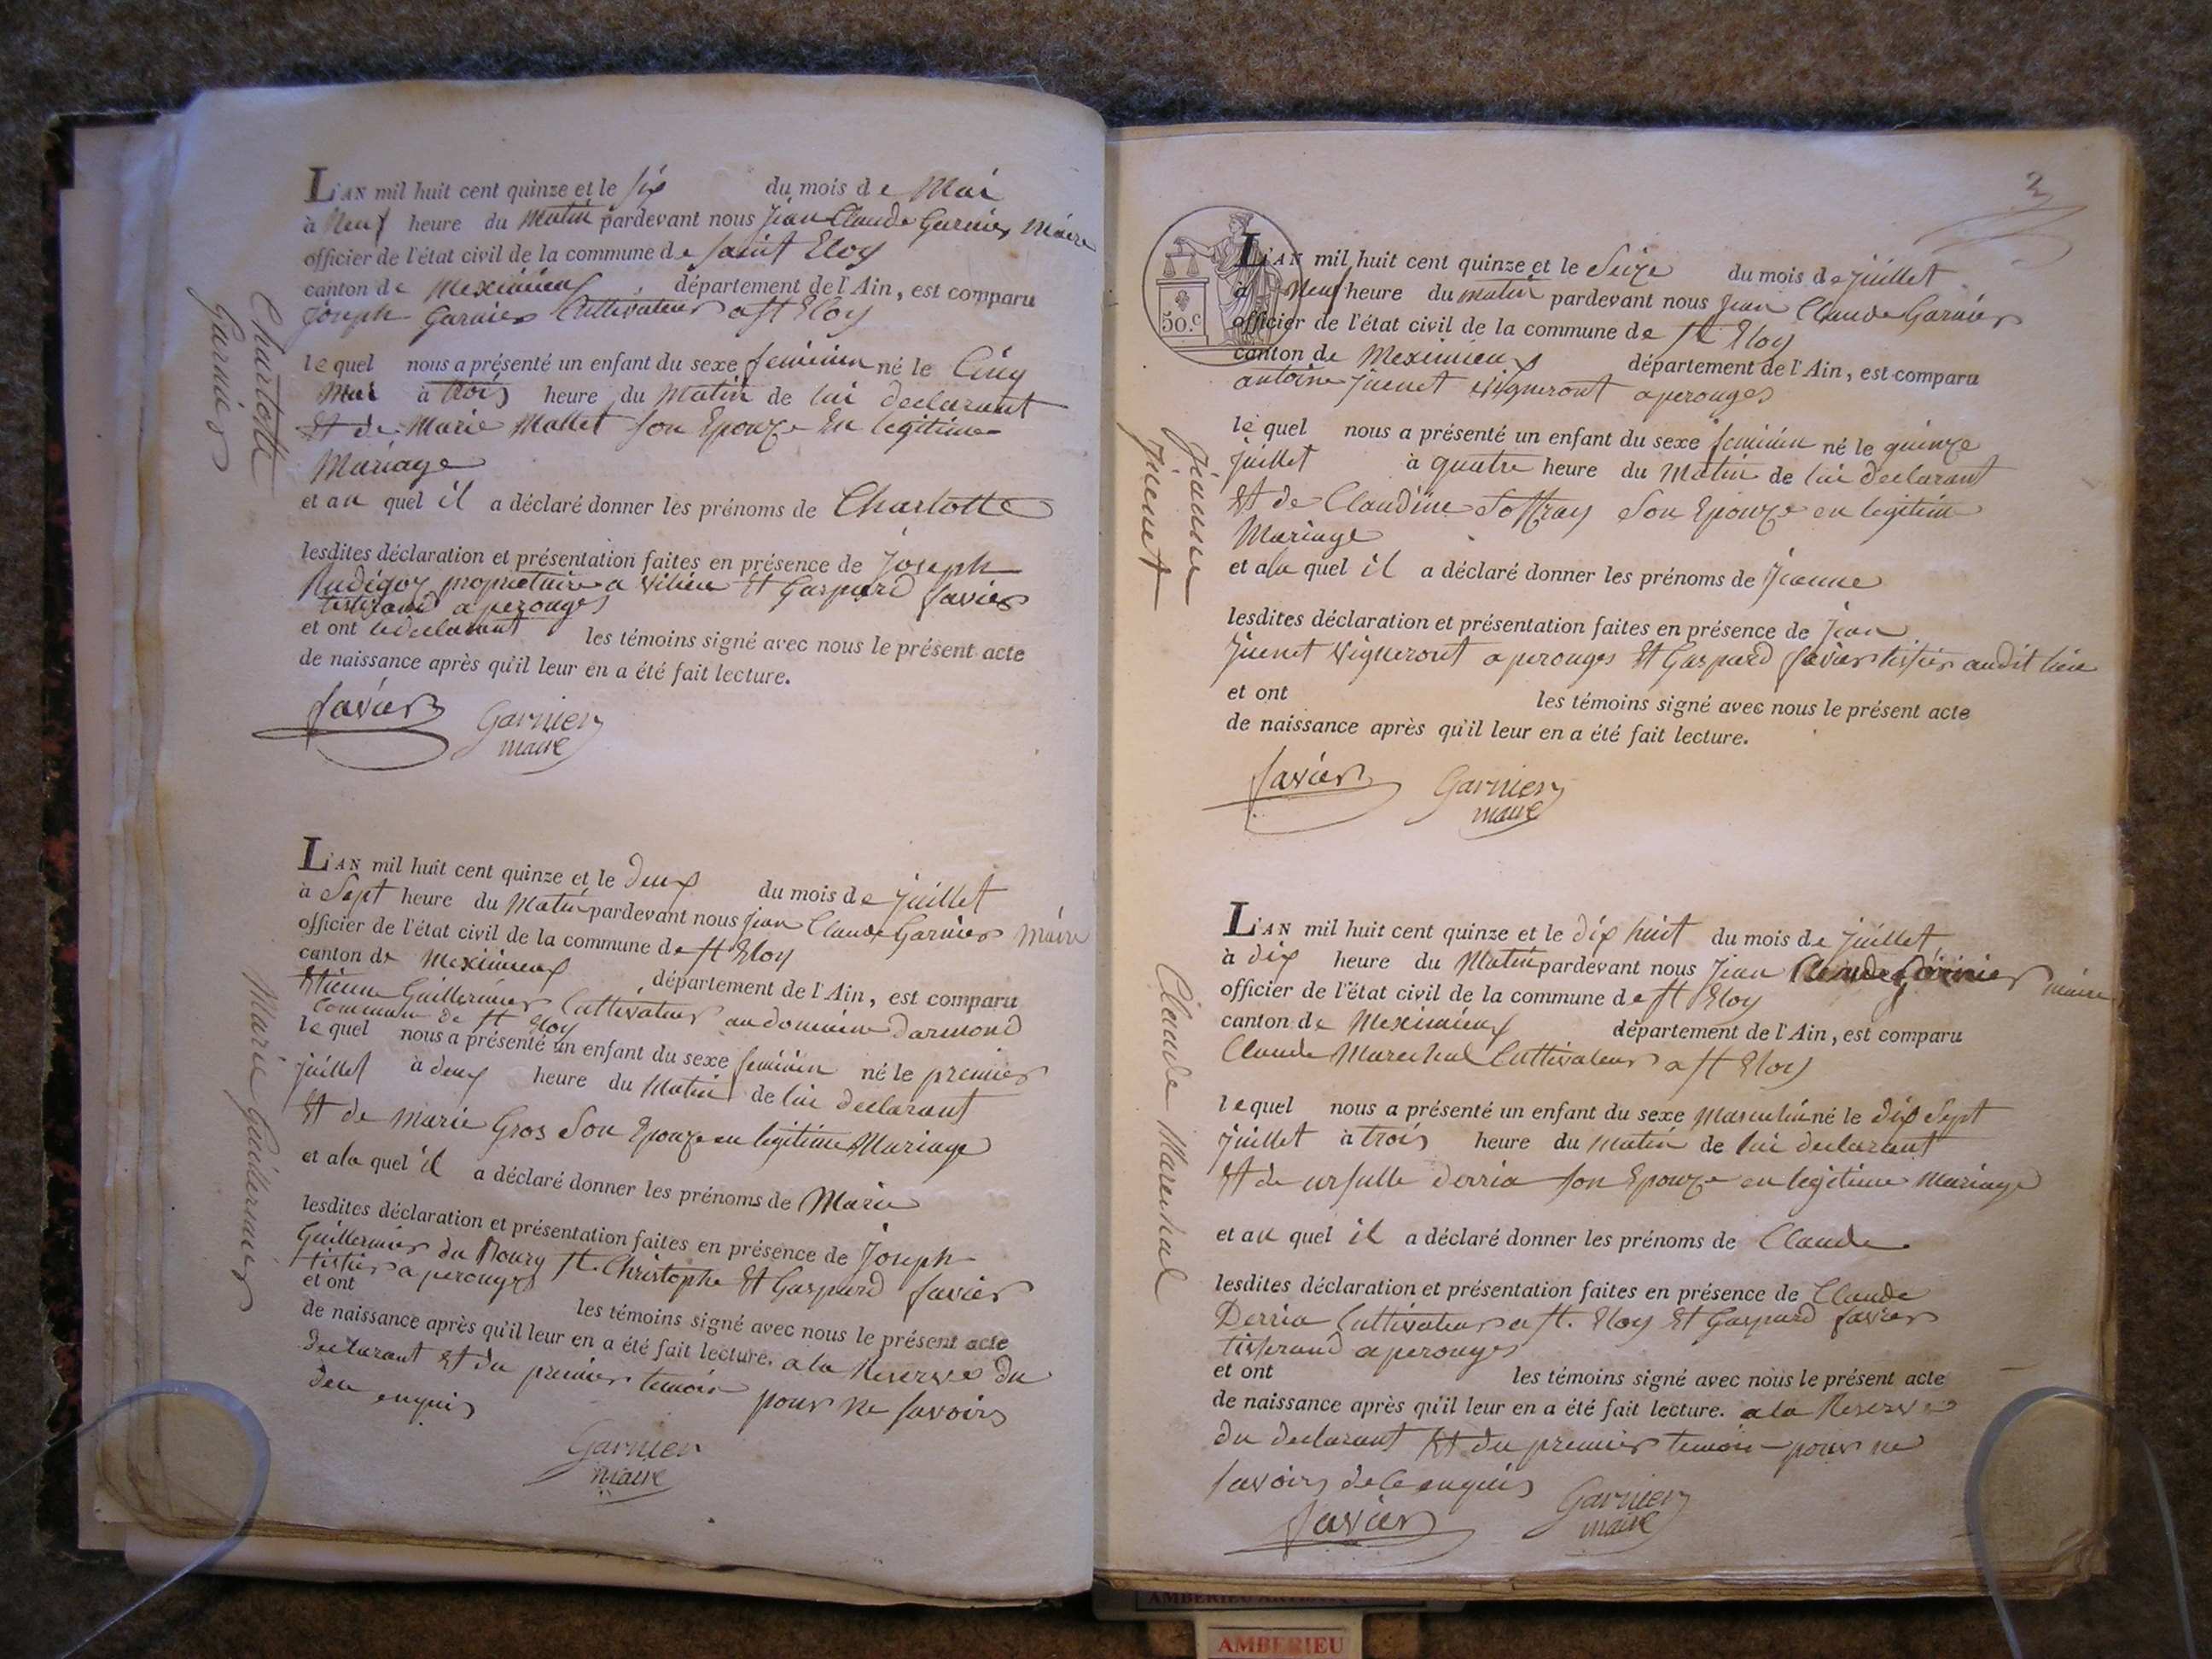 L'AN mil huit cent quinze et le six du mois de Mai
à Neuf heure du Matin pardevant nous Jean Claude Garnier Maire
officier de l'état civil de la commune de saint Eloy
canton de Meximieux, département de l'Ain, est comparu
Joseph Garnier Cultivateur a st Eloy
lequel nous a présenté un enfant du sexe feminin né le Cinq
Mai à trois heure du Matin de lui declarant
Et de Marie Mallet son Epouze En legitime
Mariage
et au quel il a déclaré donner les prénoms de Charlotte
lesdites déclaration et présentation faites en présence de Joseph
Rudigoz proprietaire a vilieu Et Gaspard Savier
tisserand a perouges
et ont le declarant les témoins signé avec nous le présent acte
de naissance après qu'il leur en a été fait lecture.
Savier Garnier
maire
Charlotte
Garnier
L'AN mil huit cent quinze et le deux du mois de juillet
à Sept heure du Matin pardevant nous Jean Claude Garnier Maire
officier de l'état civil de la commune de st Eloy
canton de Meximieux, département de l'Ain, est comparu
Etienne Guillermier Cultivateur au domaine darmond
Commune de st Eloy
lequel nous a présenté un enfant du sexe feminin né le premier
juillet à deux heure du Matin de lui declarant
Et de marie Gros Son Epouze en legitime Mariage
et ala quel il a déclaré donner les prénoms de Marie
lesdites déclaration et présentation faites en présence de Joseph
Guillermier du Bourg st Christophe Et Gaspard Savier
tissier a perouges
et ont les témoins signé avec nous le présent acte
de naissance après qu'il leur en a été fait lecture. a la Reserve du
Declarant Et du premier temoin pour ne savoir
de enquis
Garnier
maire
Marie Guillermier
3
50.c
L'AN mil huit cent quinze et le Seize du mois de juillet
à Neuf heure du matin pardevant nous Jean Claude Garnier
officier de l'état civil de la commune de st Eloy
canton de Meximieux département de l'Ain, est comparu
antoine Juenet vigneront a perouges
le quel nous a présenté un enfant du sexe feminin né le quinze
juillet à quatre heure du Matin de lui declarant
Et de Claudine Soffray Son Epouze en legitim
Mariage
et ala quel il a déclaré donner les prénoms de Jeanne
lesdites déclaration et présentation faites en présence de Jean
Juenet vigneront a perouges Et Gaspard Savier tissier audit lieu
et ont les témoins signé avec nous le présent acte
de naissance après qu'il leur en a été fait lecture.
Savier Garnier
maire
Jeanne
Juenet
L'AN mil huit cent quinze et le dix huit du mois de juillet
à dix heure du Matin pardevant nous Jean Claude Garnier maire
officier de l'état civil de la commune de st Eloy
canton de Meximieux département de l'Ain, est comparu
Claude Marechal Cultivateur a st Eloy
lequel nous a présenté un enfant du sexe Masculin né le dix Sept
juillet à trois heure du matin de lui declarant
Et de ursulle derria son Epouze en legitime Mariage
et au quel il a déclaré donner les prénoms de Claude
lesdites déclaration et présentation faites en présence de Claude
Derria Cultivateur a st. Eloy Et Gaspard Savier
tisserand a perouges
et ont les témoins signé avec nous le présent acte
de naissance après qu'il leur en a été fait lecture. a la Reserve
du declarant Et du premier temoin pour ne
savoir de ce enquis
Savier Garnier
maire
Claude Marechal
AMBERIEU
AMBERIEU